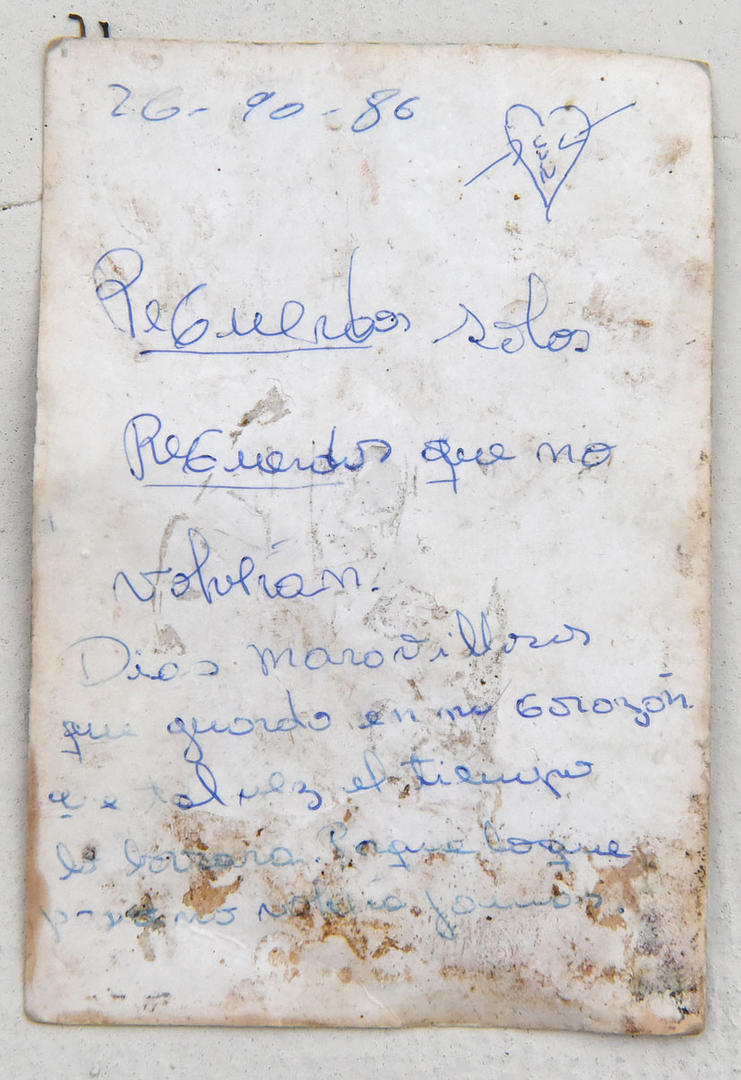 26-10-86
Recuerdos solos
Recuerdos que no
volverán.
Dias maravillosos
que guardo en mi corazón
que tal vez el tiempo
lo borrara. Porque lo que
pasa no volvera jamas.